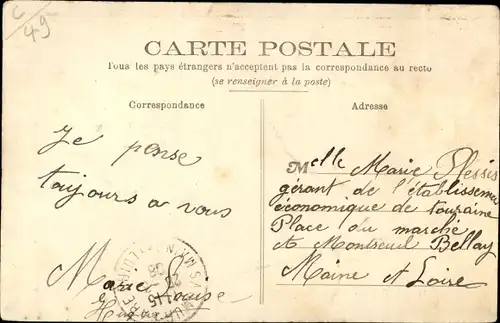 C
49
CARTE POSTALE
Tous les pays étrangers n'acceptent pas la correspondance au recto
(se renseigner à la poste)
Correspondance
Je pense
toujours a vous
Marie Louise
Adresse
Melle Marie Plessis
gérant de l'établissement
économique de touraine
Place du marché
A Montreuil Bellay
Maine et Loire